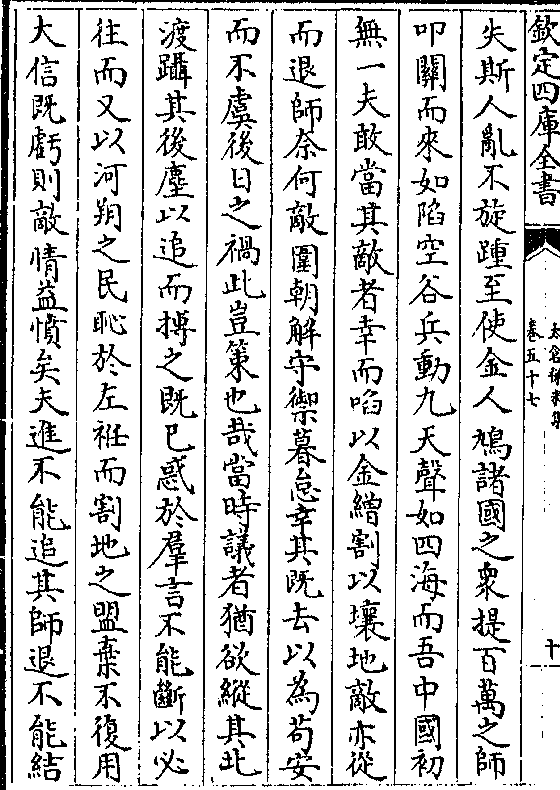 欽定四庫全書
太倉稊米集
卷五十七
十
失斯人亂不旋踵至使金人鳩諸國之衆提百萬之師
叩關而來如陷空谷兵動九天聲如四海而吾中國初
無一夫敢當其敵者幸而啗以金繒割以壤地敵亦從
而退師奈何敵圍朝解守禦暮怠幸其既去以為苟安
而不虞後日之禍此豈策也哉當時議者猶欲縱其北
渡躡其後塵以追而搏之既已惑於羣言不能斷以必
往而又以河朔之民恥於左袵而割地之盟棄不復用
大信既虧則敵情益憤矣夫進不能追其師退不能結